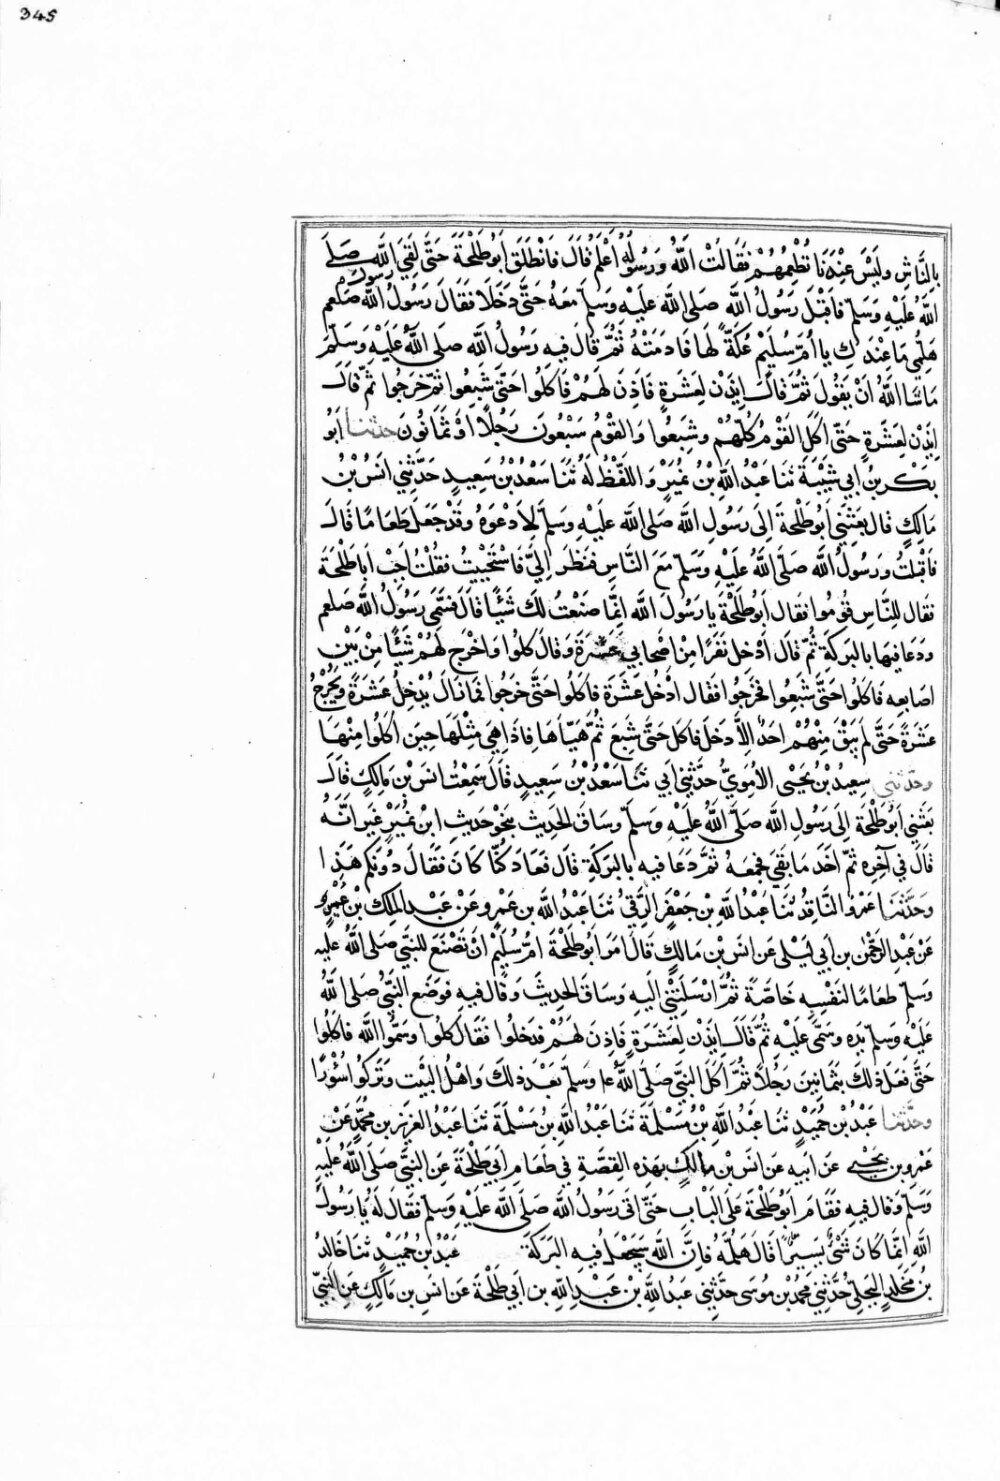 345
بالناس وليس عندنا نطعمهم فقالت الله ورسوله اعلم قال فانطلق ابو طلحة حتى لقي رسول الله صلى
الله عليه وسلم فاقبل رسول الله صلى الله عليه وسلم معه حتى دخلا فقال رسول الله صلعم
هلمي ما عندك يا ام سليم عكة لها فادمته ثم قال فيه رسول الله صلى الله عليه وسلم
ما شا الله ان يقول ثم قال ايذن لعشرة فاذن لهم فاكلوا حتى شبعوا ثم خرجوا ثم قال
ايذن لعشرة حتى اكل القوم كلهم وشبعوا والقوم سبعون رجلا او ثمانون حدثنا ابو
بكر بن ابي شيبة ثنا عبد الله بن نمير واللفظ له ثنا سعد بن سعيد حدثني انس بن
مالك قال بعثني ابو طلحة الى رسول الله صلى الله عليه وسلم لادعوه وقد جعل طعاما قال
فاقبلت ورسول الله صلى الله عليه وسلم مع الناس فنظر الي فاستحييت فقلت اجب ابا طلحة
فقال للناس قوموا فقال ابو طلحة يا رسول الله انما صنعت لك شيئا قال فمسها رسول الله صلعم
ودعا فيها بالبركة ثم قال ادخل نفرا من اصحابي عشرة وقال كلوا واخرج لهم شيئا من بين
اصابعه فاكلوا حتى شبعوا فخرجوا فقال ادخل عشرة فاكلوا حتى خرجوا فما زال يدخل عشرة ويخرج
عشرة حتى لم يبق منهم احد الا دخل فاكل حتى شبع ثم هيأها فاذا هي مثلها حين اكلوا منها
وحدثني سعيد بن يحيى الاموي حدثني ابي ثنا سعد بن سعيد قال سمعت انس بن مالك قال
بعثني ابو طلحة الى رسول الله صلى الله عليه وسلم وساق الحديث بنحو حديث ابن نمير غير انه
قال في آخره ثم اخذ ما بقي فجمعه ثم دعا فيه بالبركة قال فعاد كما كان فقال دونكم هذا
وحدثنا عمرو الناقد ثنا عبد الله بن جعفر الرقي ثنا عبد الله بن عمرو عن عبد الملك بن عمير
عن عبد الرحمن بن ابي ليلى عن انس بن مالك قال امر ابو طلحة ام سليم ان تصنع للنبي صلى الله عليه
وسلم طعاما لنفسه خاصة ثم ارسلتني اليه وساق الحديث وقال فيه فوضع النبي صلى الله
عليه وسلم يده وسمى عليه ثم قال ايذن لعشرة فاذن لهم فدخلوا فقال كلوا وسموا الله فاكلوا
حتى فعل ذلك بثمانين رجلا ثم اكل النبي صلى الله وسلم بعد ذلك واهل البيت وتركوا سؤرا
وحدثنا عبد بن حميد ثنا عبد الله بن مسلمة ثنا عبد الله بن مسلمة ثنا عبد العزيز بن محمد عن
عمرو بن يحيى عن ابيه عن انس بن مالك بهذه القصة في طعام ابي طلحة عن النبي صلى الله عليه
وسلم وقال فيه فقام ابو طلحة على الباب حتى اتى رسول الله صلى الله عليه وسلم فقال له يا رسول
الله انما كان شئ يسيرا قال هلمه فان الله سيجعل فيه البركة عبد بن حميد ثنا خالد
بن مخلد البجلي حدثني محمد بن موسى حدثني عبد الله بن عبد الله بن ابي طلحة عن انس بن مالك عن النبي